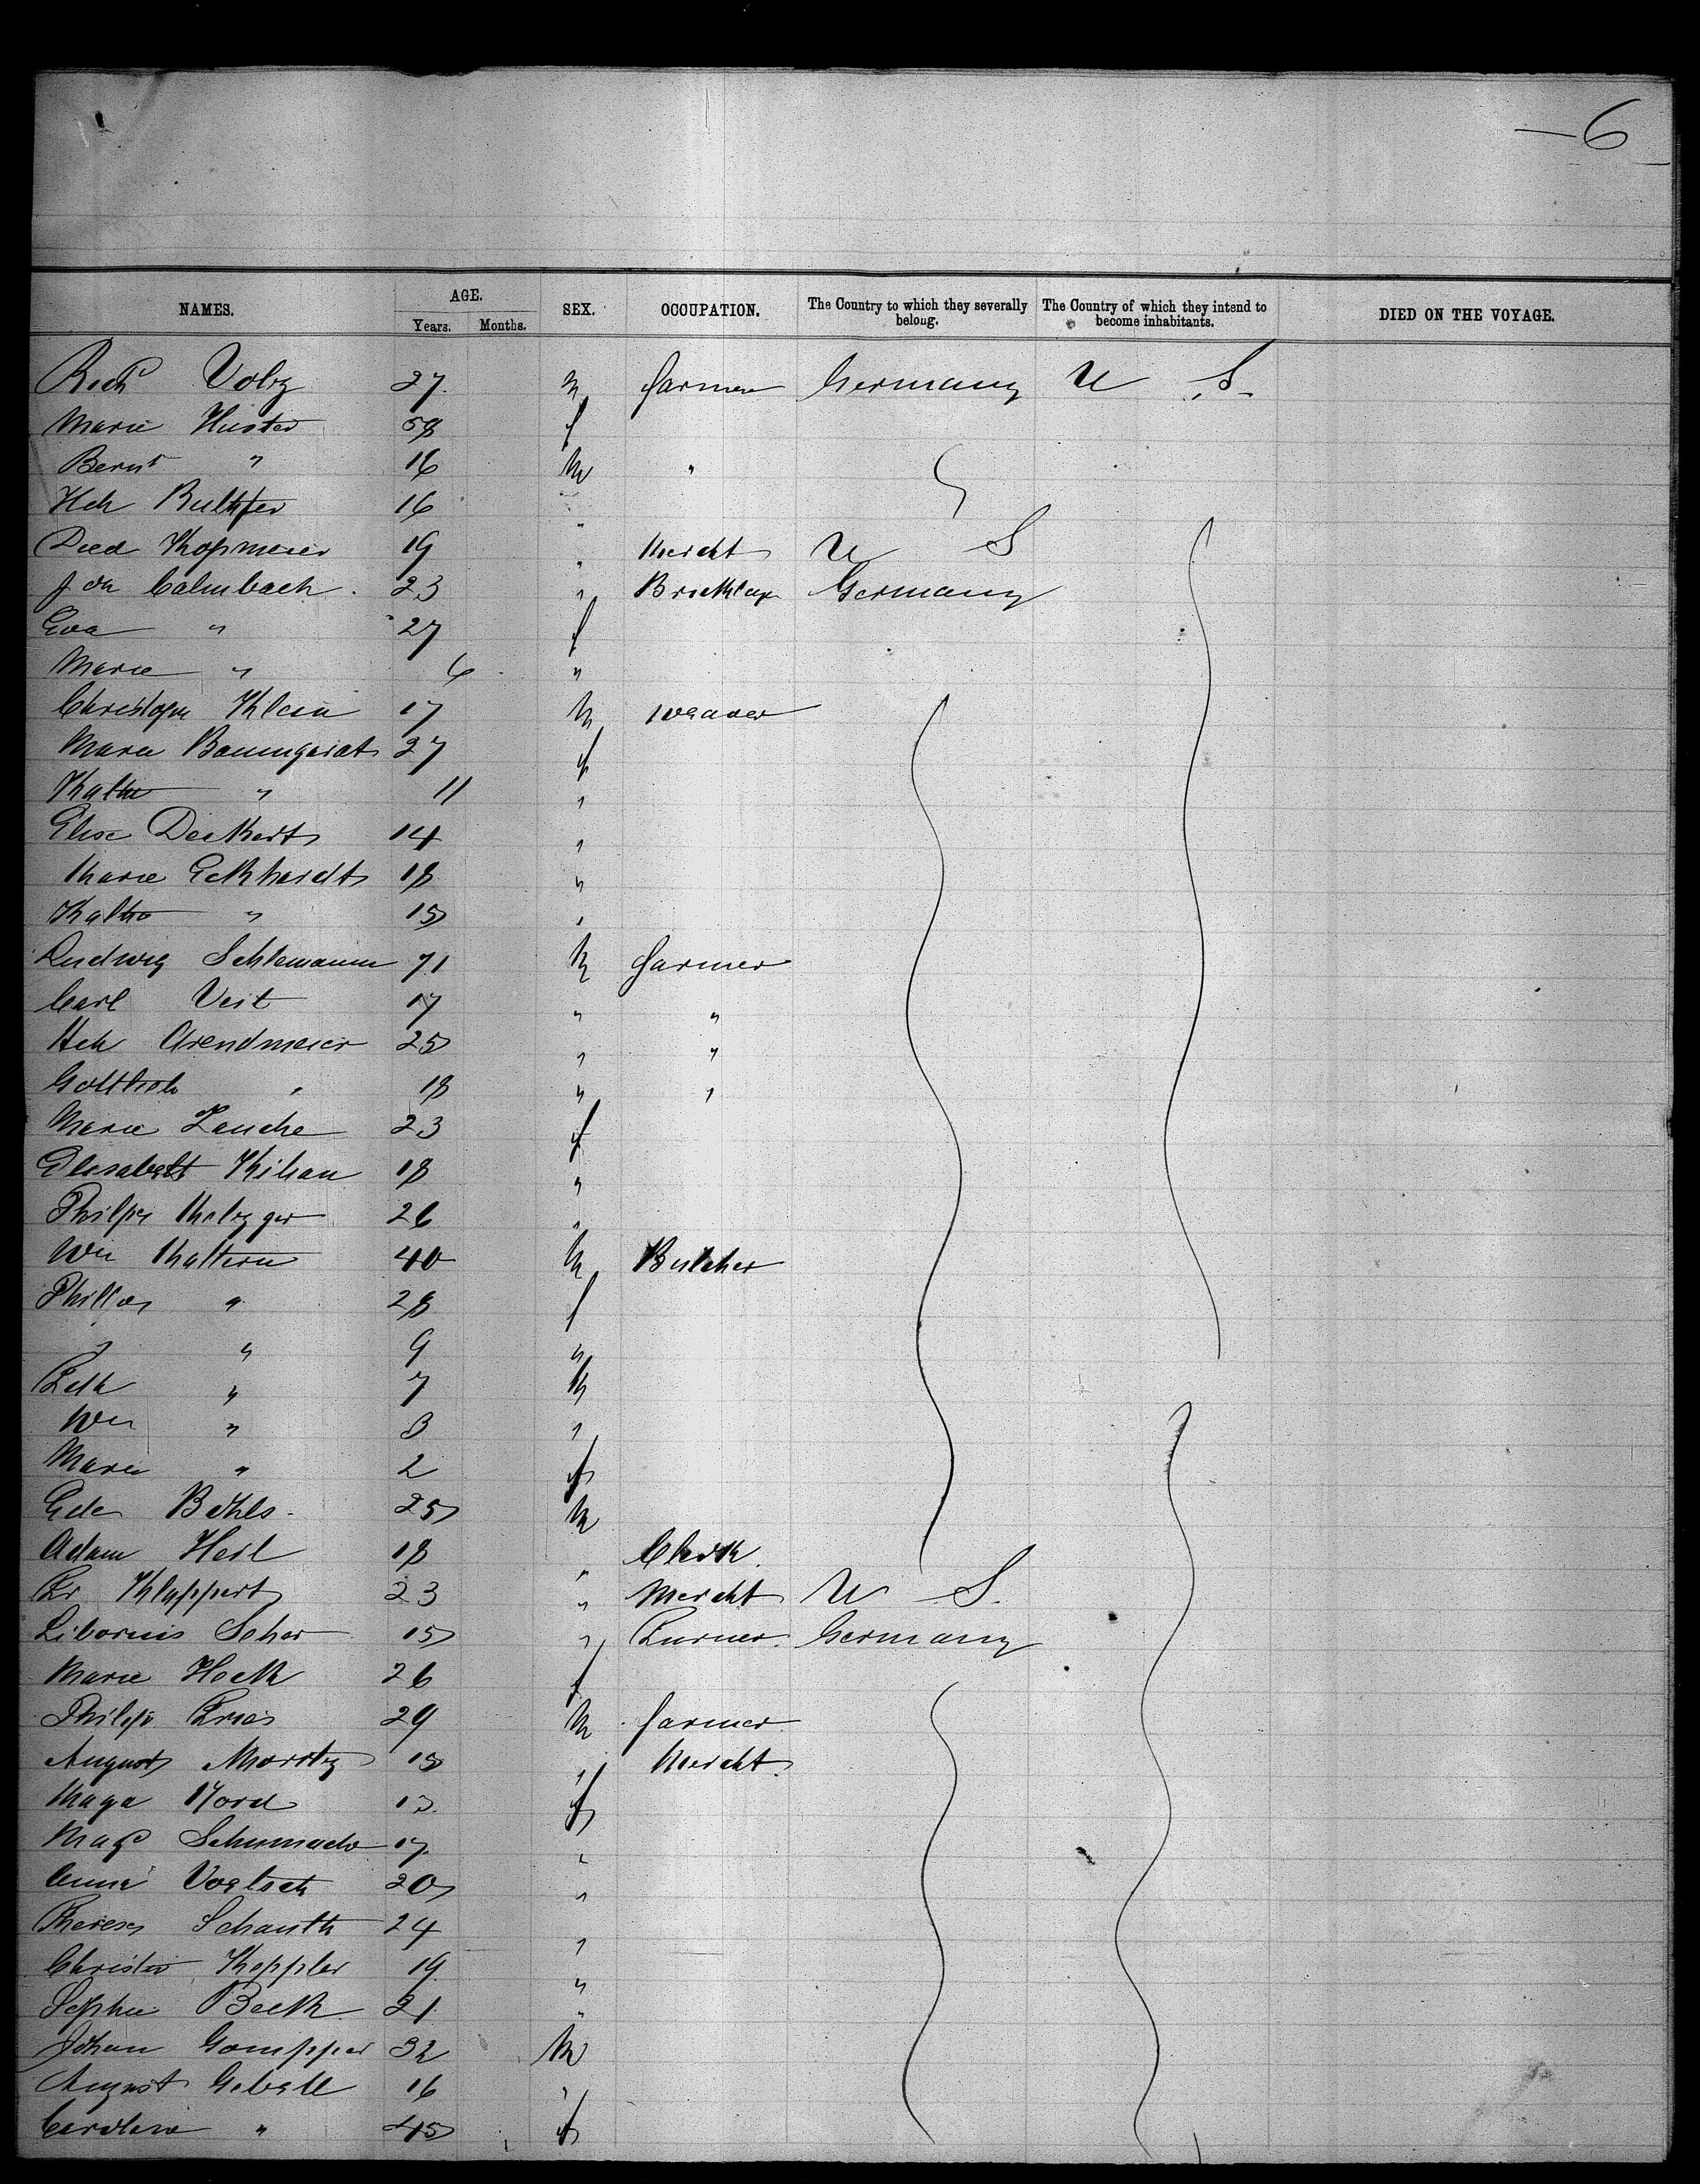 —6
NAMES. AGE. Years. Months. SEX. OCCUPATION. The Country to which they severally belong. The Country of which they intend to become inhabitants. DIED ON THE VOYAGE.
Rich Volz 27 m farmer Germany U S.
Marie Huster 58 f
Bernt " 16 m "
Hch 16 "
Died Kopmeier 19 " Mercht U S
Joh Calmbach 23 " Bricklay Germany
Eva " 27 f
Marie " 6 "
Christoph Klein 17 m weaver
Marie Baumgardt 27 f
Kathe " 11 "
Elise Deckert 14 "
Marie Eckhardt 18 "
Kathe " 15 "
Ludwig Schlemann 71 m farmer
Carl Veit 17 " "
Hch Arendmeier 25 " "
Gottlieb " 18 " "
Marie Zauche 23 f
Elisabeth Kilian 18 "
Philipp Metzger 26 "
Wm Mattern 40 m Butcher
" 28 f
" 9 "
" 7 m
Wm " 3 "
Marie " 2 f
Ede Bohls 25 m
Adam Heil 18 " Clerk
Fr Kluppert 23 " Mercht U S.
Liborius Scher 15 " Turner Germany
Marie Hock 26 f
Philipp Fries 29 m farmer
August Moritz 15 " Mercht
Maga Nord 13 f
Magd Schumacher 17 "
Anna Voelsch 20 "
Theresa Schauth 24 "
Christine Keppler 19 "
Sophie Beck 21 "
Johan Gompper 32 m
August Gebell 16 "
Caroline " 45 f